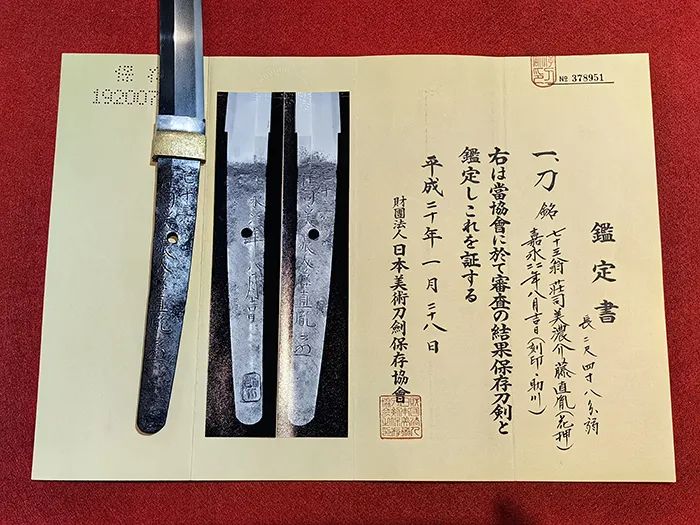 № 378951
鑑定書
長二尺四寸八分弱
一、刀 銘 七十三翁 荘司美濃介藤直胤(花押)
嘉永二二年八月吉日(刻印・助川)
右は當協會に於て審査の結果保存刀剣と
鑑定しこれを証する
平成二十年一月二十八日
財團法人 日本美術刀劍保存協會